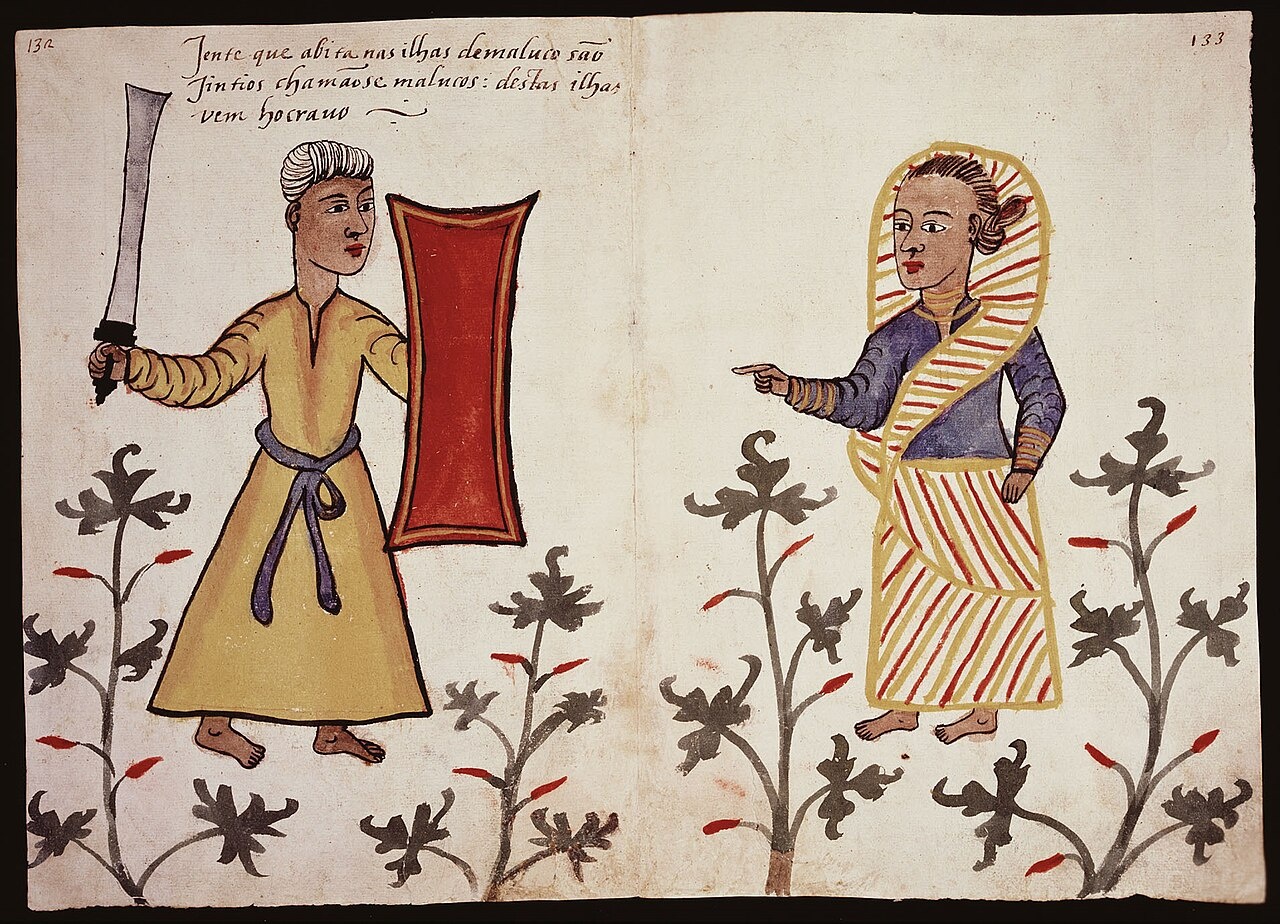 132
Jente que abita nas ilhas demaluco são
Jintios chamãose malucos: destas ilhas
vem hocravo
133